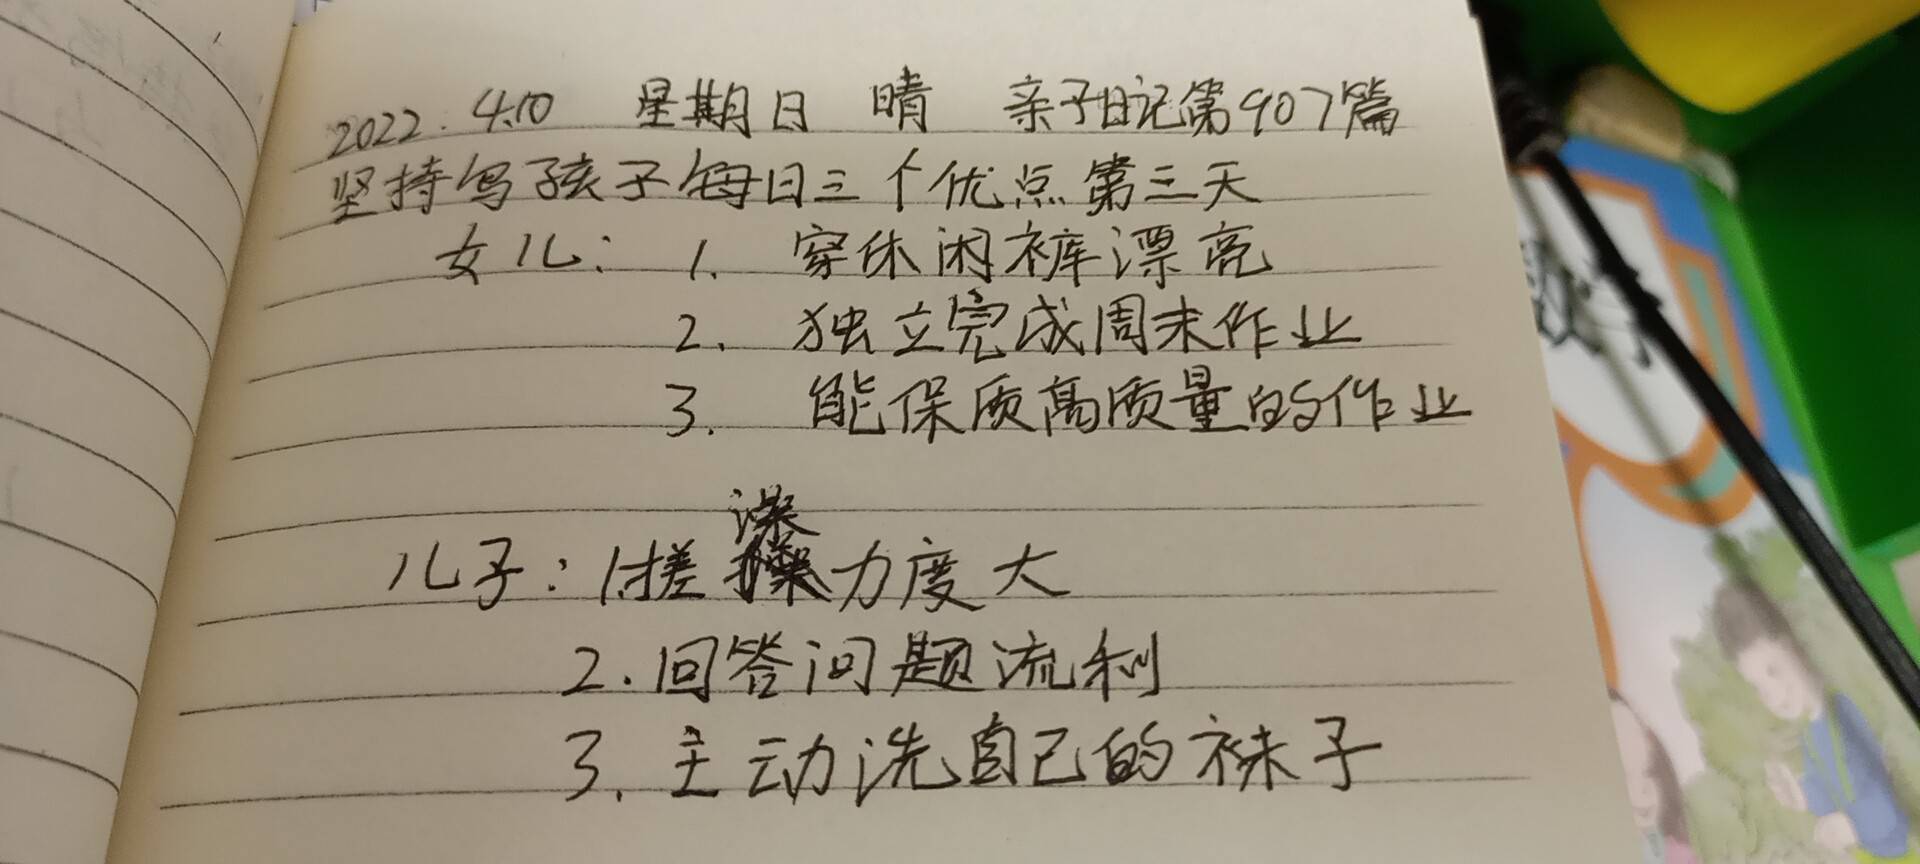 2022.4.10 星期日 晴 亲子日记第907篇
坚持写孩子每日三个优点第三天
女儿: 1. 穿休闲裤漂亮
2. 独立完成周末作业
3. 能保质高质量的作业
儿子: 1.搓澡力度大
2.回答问题流利
3.主动洗自己的袜子